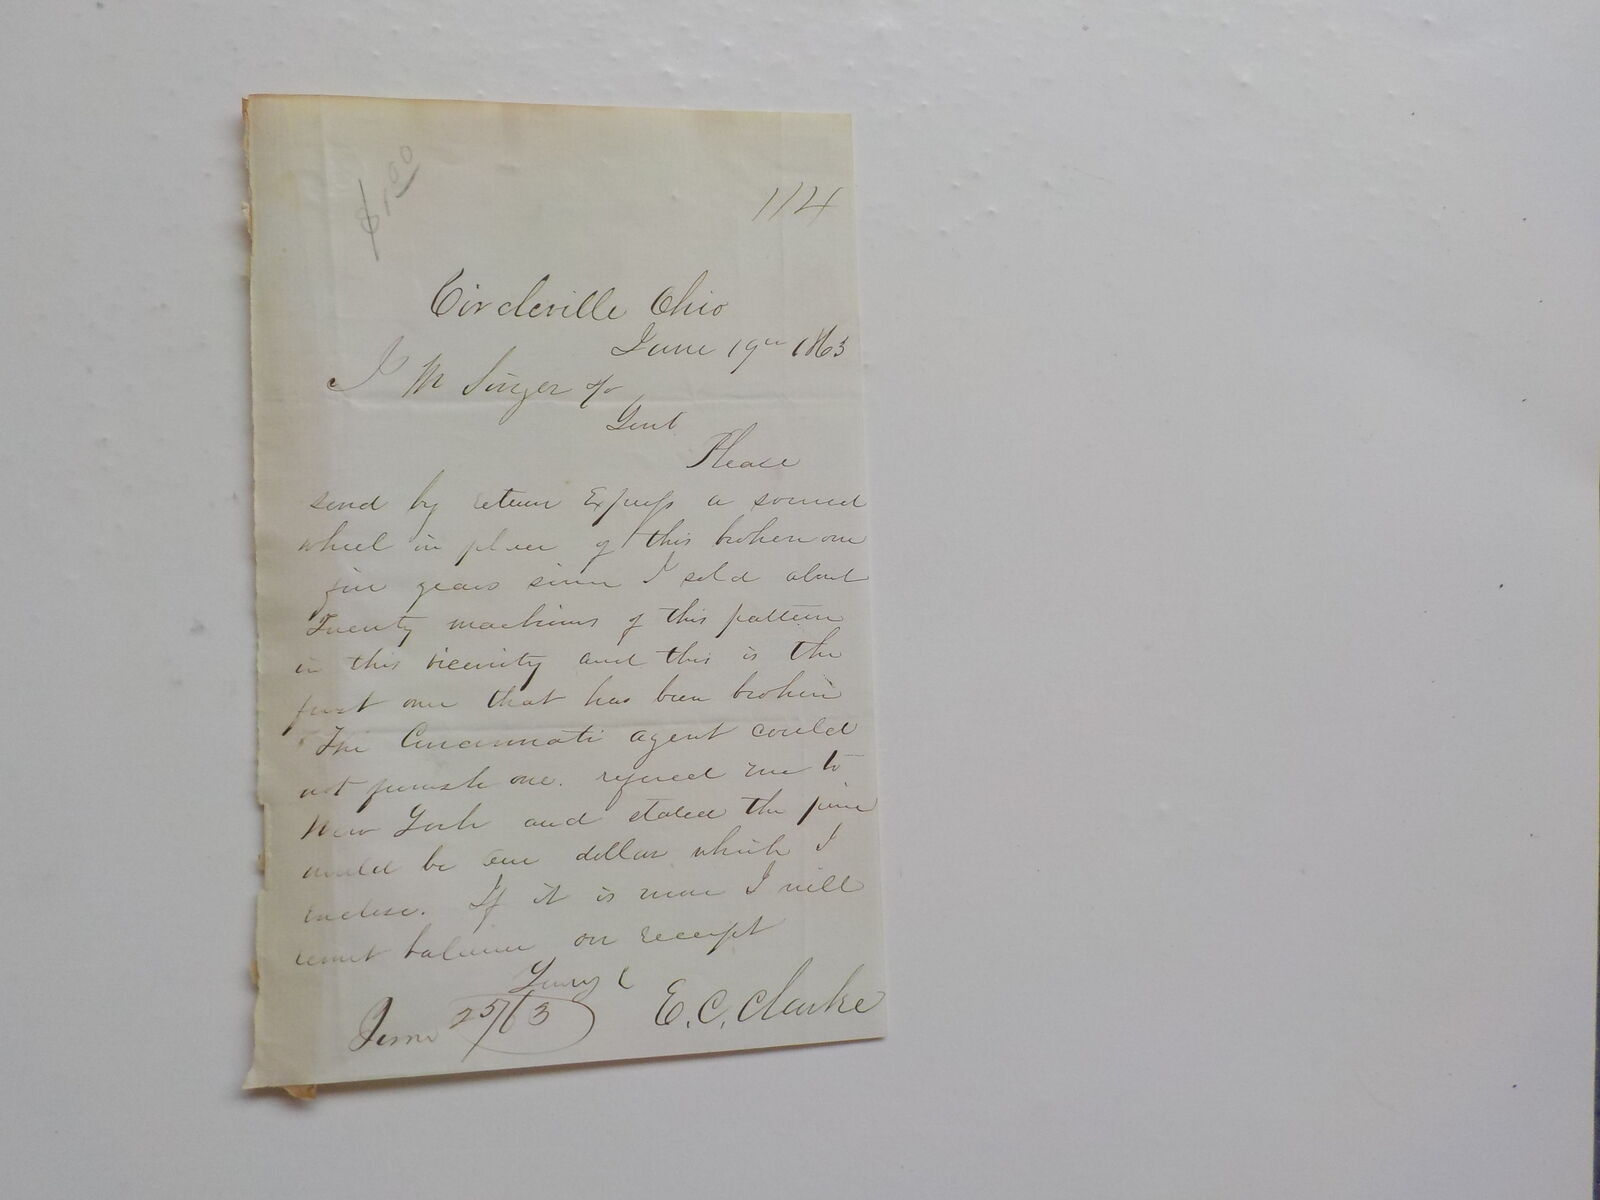 $1.00
114
Circleville Ohio
June 19th 1863
I M Singer & Co
Gent
Please
send by return Express a sound
wheel in place of this broken one
five years since I sold about
Twenty machines of this pattern
in this vicenity and this is the
first one that has been broken
The Cincinnati agent could
not furnish one. refered me to
New York and stated the price
would be one dollar which I
enclose. If it is more I will
remit balance on receipt
Yours
E. C. Clarke
June 25/63